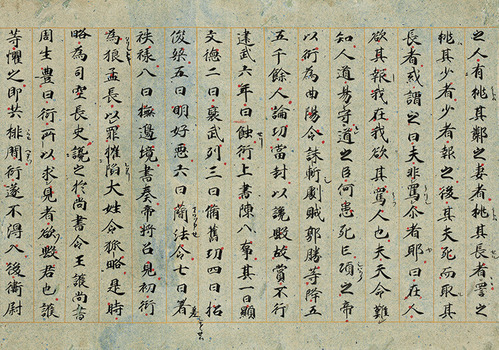 之人有挑其鄰之妻者挑其長者詈之
挑其少者少者報之後其夫死而取其
長者或謂之曰夫非罵尒者耶曰在人
欲其報我在我欲其罵人也夫天命難
知人道易守道之臣何患死亡頃之帝
以衍為曲陽令誅斬劇賊郭勝等降五
五千餘人論功當封以讒毀故賞不行
建武六年日蝕衍上書陳八事其一曰顯
文德二曰襃武列三曰脩舊功四曰招
俊桀五曰明好悪六曰蕳法令七曰著
秩祿八曰撫邊境書奏帝將召見初衍
為狼孟長以罪摧陷大姓令狐略是時
略為司空長史讒之於尚書令王護尚書
周生豊曰衍所以求見者欲毀君也護
等懼之即共排閒衍遂不得入後衛尉